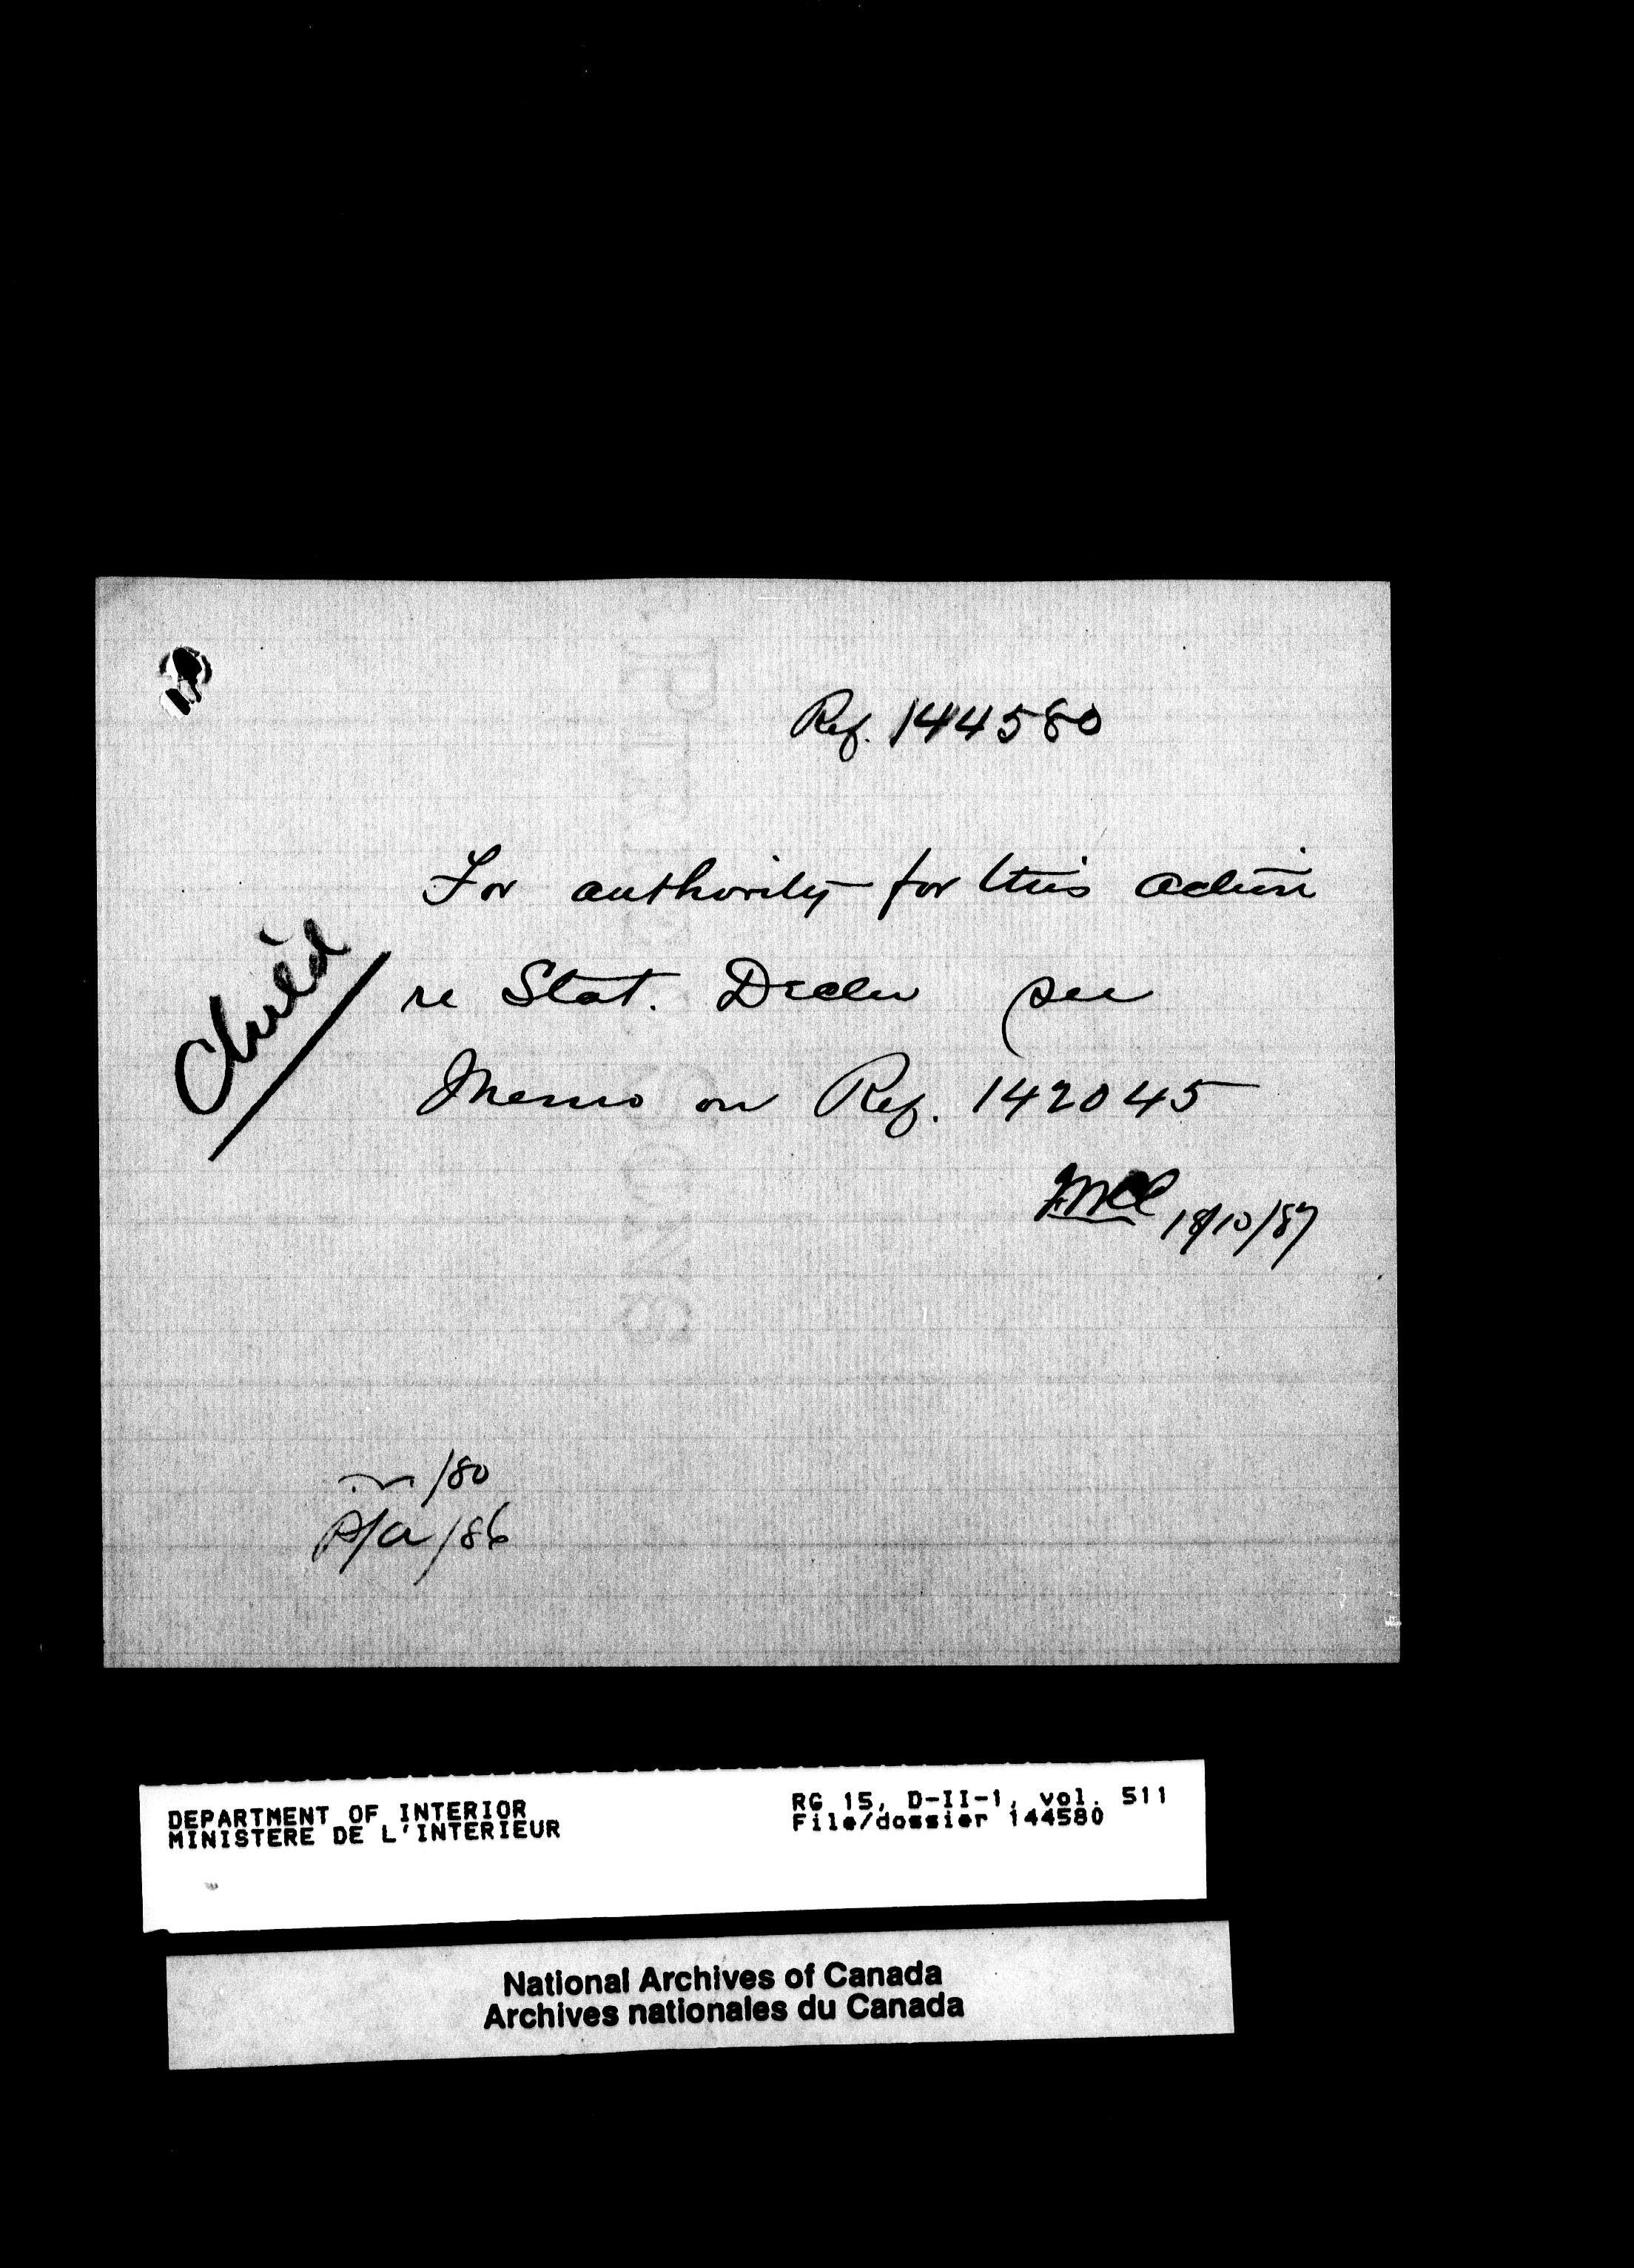 Ref. 144580
For authority for this action
re Stat. Decln see
Memo on Ref. 142045
18/10/87
Child
/80
/86
DEPARTMENT OF INTERIOR
MINISTERE DE L'INTERIEUR
RG 15, D-II-1, vol. 511
File/dossier 144580
National Archives of Canada
Archives nationales du Canada